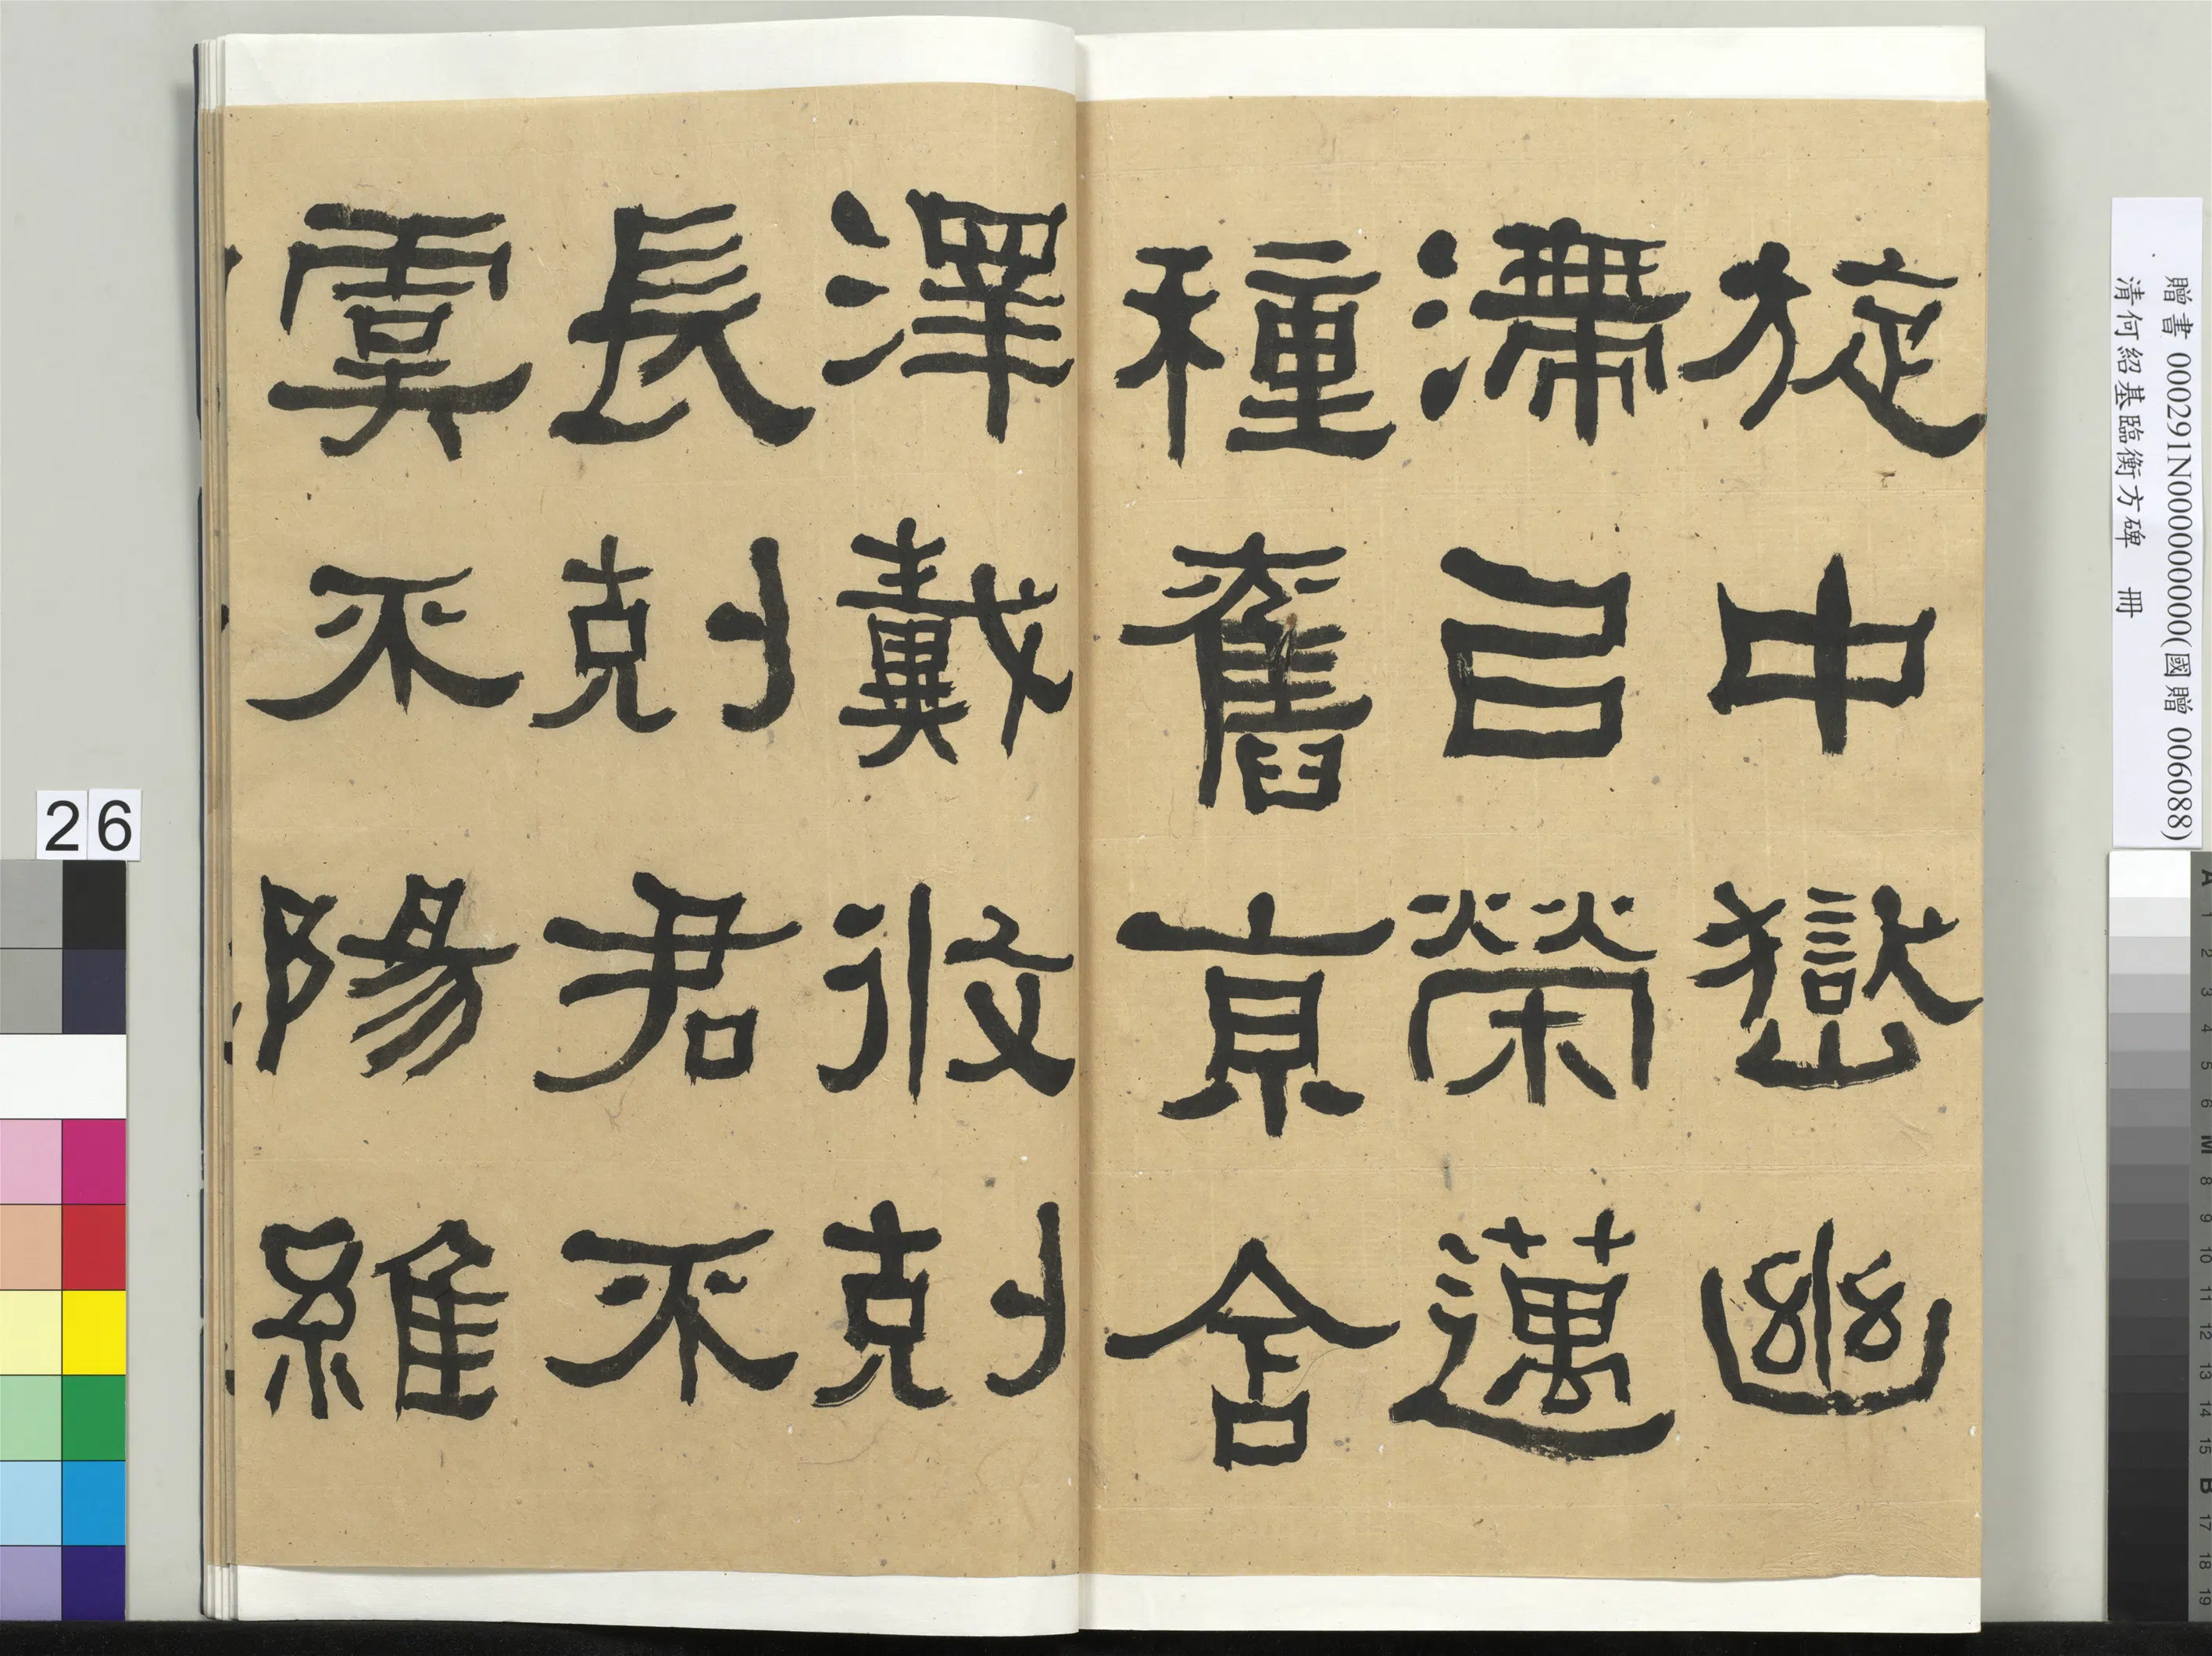 旋中嶽幽
滯㠯榮邁
種舊京舍
澤戴收剋
長剋君不
虞不陽維
贈書 000291N000000000(國贈 006088)
清何紹基臨衡方碑 冊
26
A 1 2 3 4 5 6 M 8 9 10 11 12 13 14 15 B 17 18 19